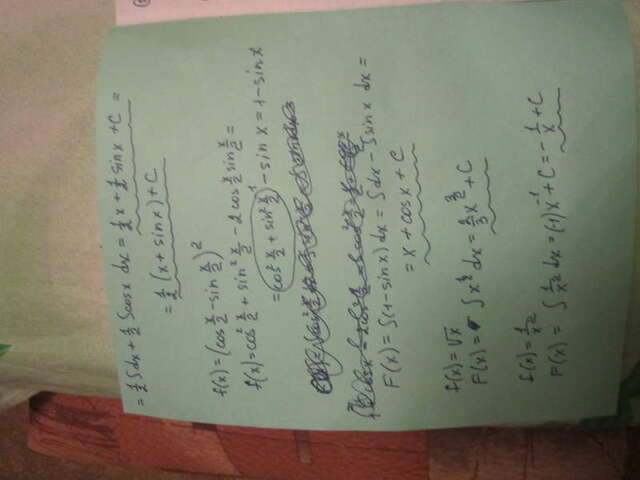 = 1/2 ∫dx + 1/2 ∫cosx dx = 1/2 x + 1/2 sinx + C =
= 1/2 (x + sinx) + C
f(x) = (cos x/2 - sin x/2)²
f(x) = cos² x/2 + sin² x/2 - 2cos x/2 sin x/2 =
= cos² x/2 + sin² x/2 - sin x = 1 - sin x
F(x) = ∫(1 - sinx) dx = ∫dx - ∫sinx dx =
= x + cosx + C
f(x) = √x
F(x) = ∫ x^(1/2) dx = 2/3 x^(3/2) + C
f(x) = 1/x²
F(x) = ∫ 1/x² dx = (-1)x⁻¹ + C = - 1/x + C